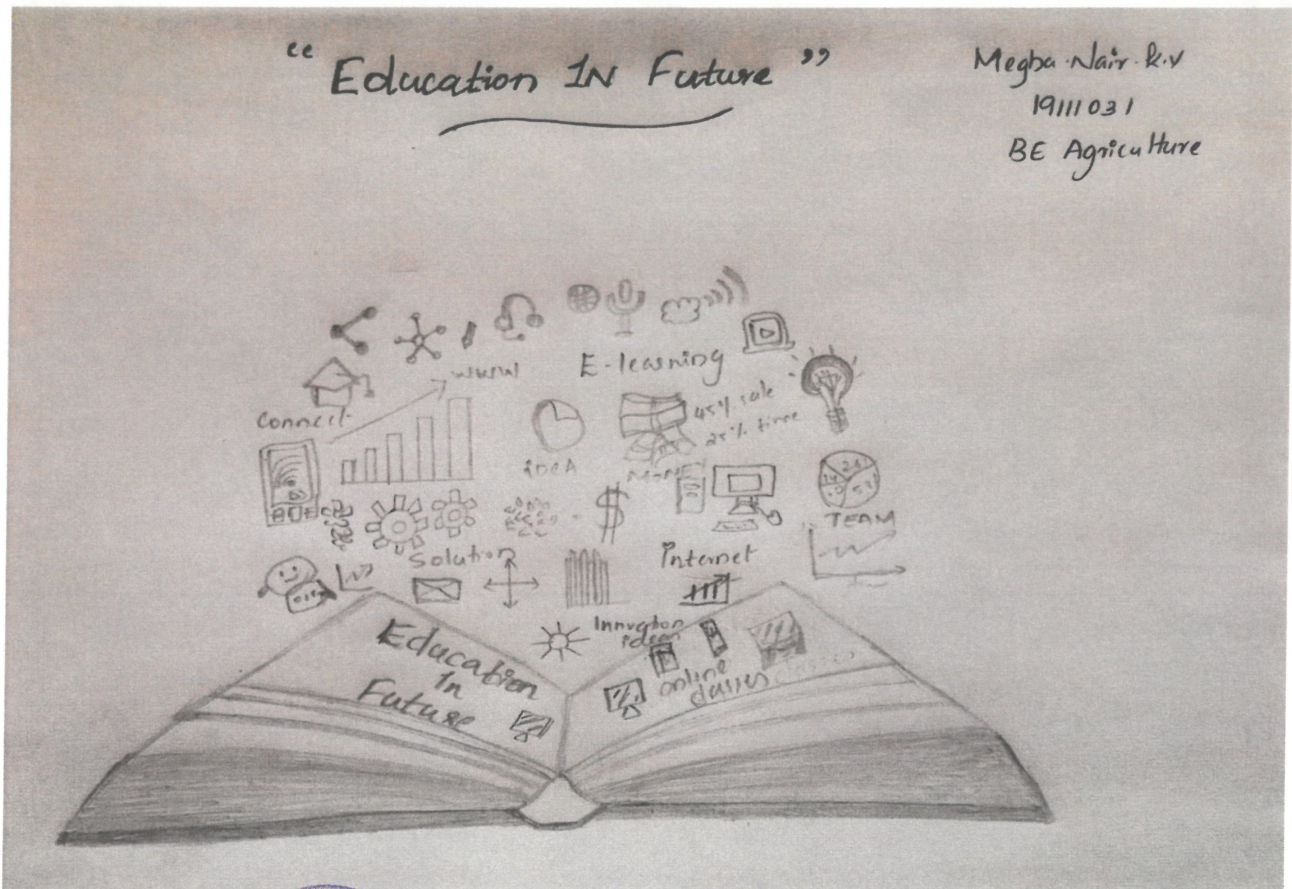 “Education IN Future”
Megha Nair K.V
19111031
BE Agriculture
E-learning
www
Connect
45% sale
25% time
iDEA
MONEY
TEAM
Solution
Internet
Innvation
ideas
Education
In
Future
online
classes